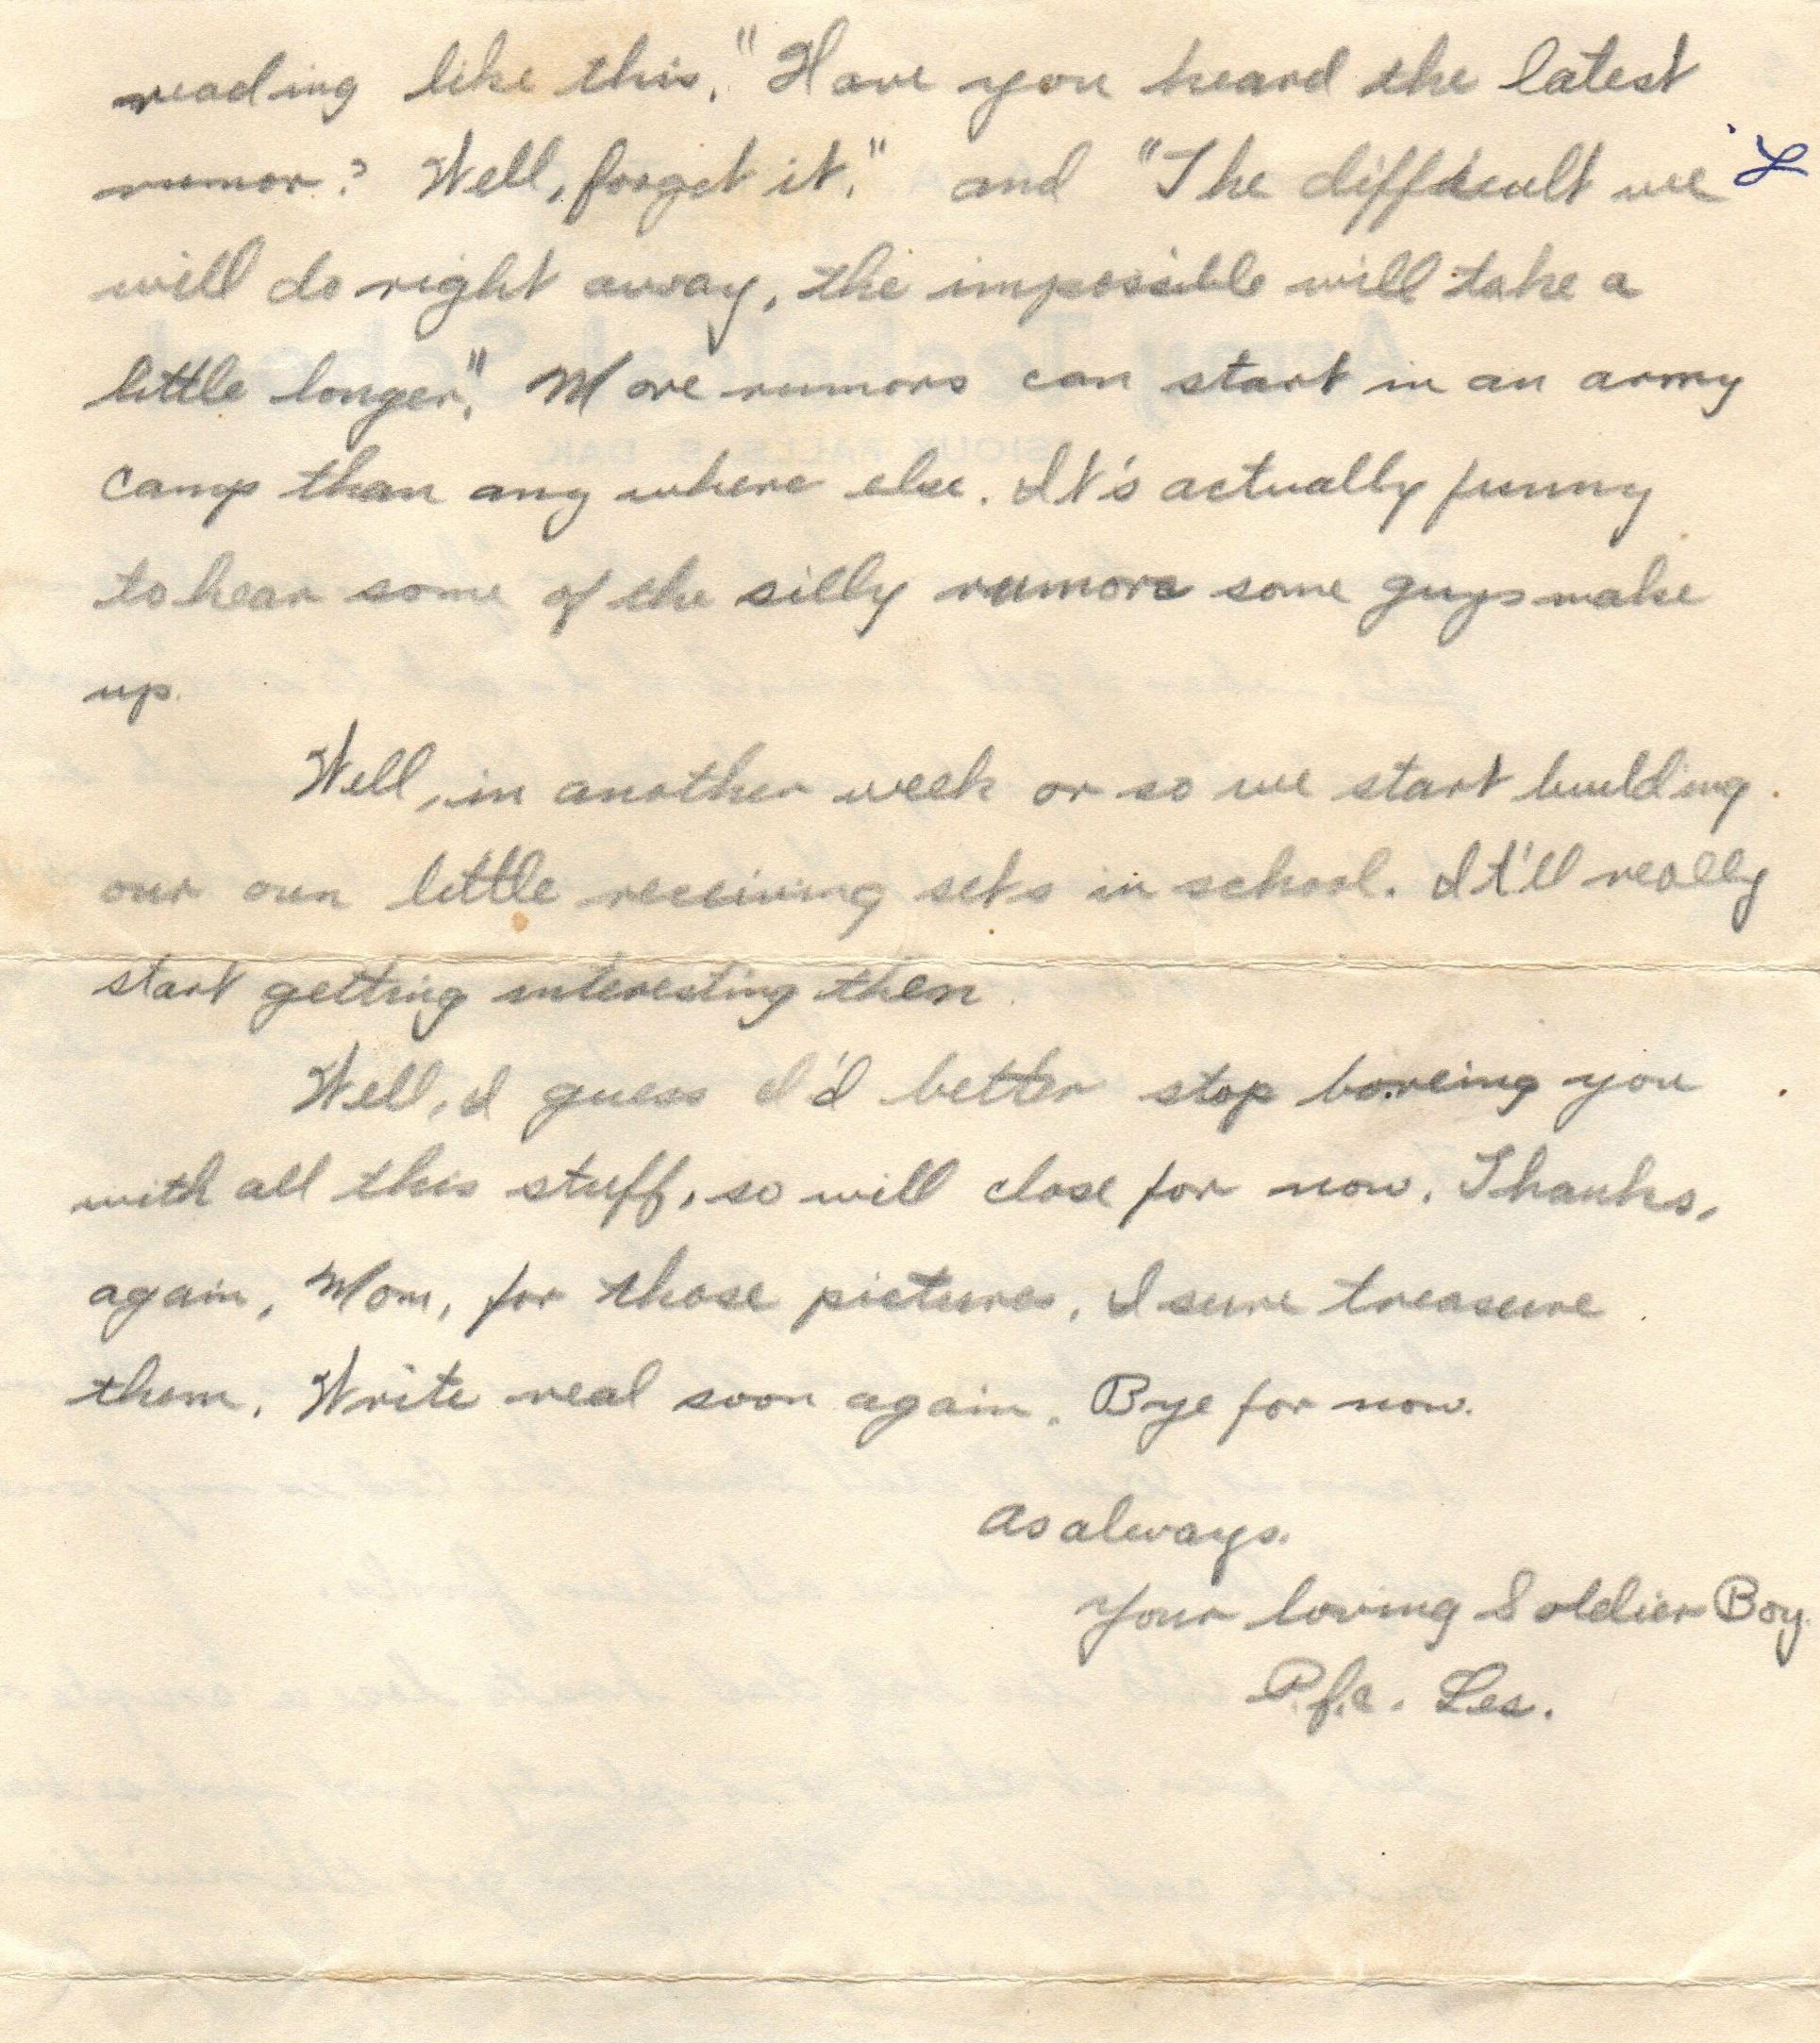 reading like this, "Have you heard the latest
rumor? Well, forget it." and "The difficult we
will do right away, the impossible will take a
little longer." More rumors can start in an army
camp than any where else. It's actually funny
to hear some of the silly rumors some guys make
up.
Well, in another week or so we start building
our own little receiving sets in school. It'll really
start getting interesting then.
Well, I guess I'd better stop boreing you
with all this stuff, so will close for now. Thanks,
again, Mom, for those pictures. I sure treasure
them. Write real soon again. Bye for now.
As always.
Your loving Soldier Boy.
P.f.c. Les.